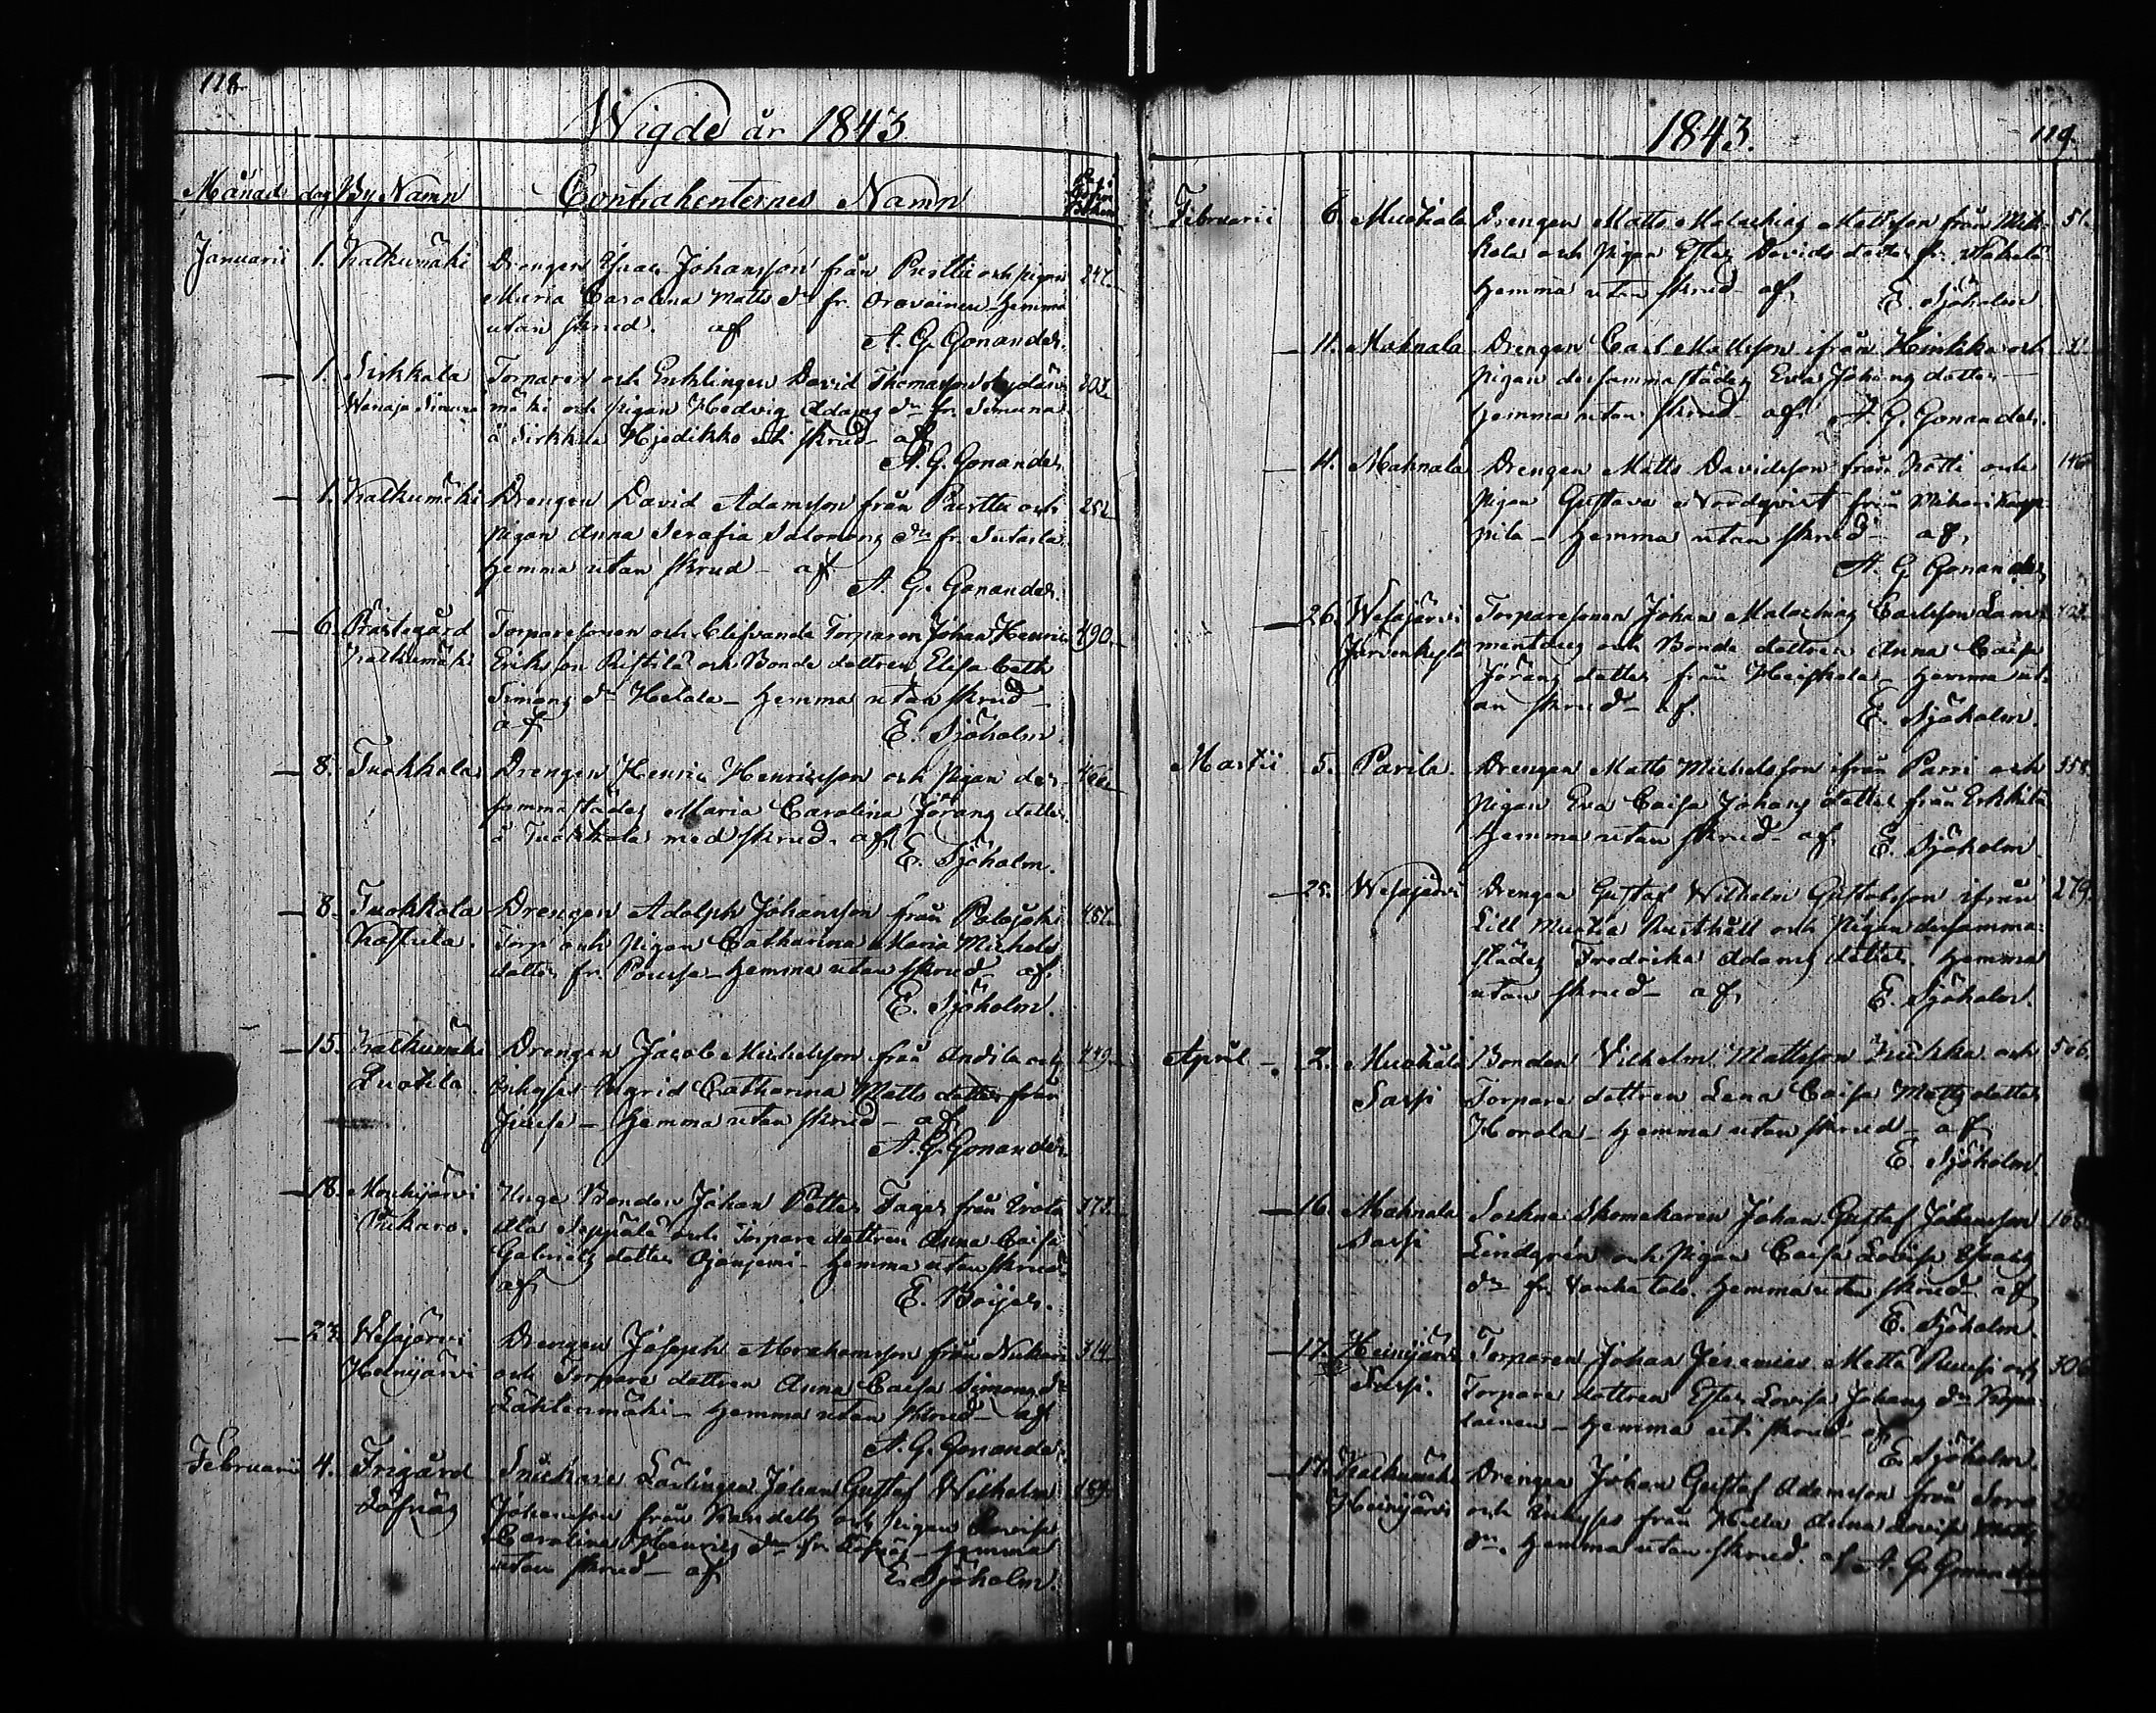 118.
Wigde år 1843
Månad dag By Namn Contrahenternes Namn
Januarii 1. Kalkumäki Drengen Isaac Johansson från Perttu och pigan 247.
Maria Carolina Matts dr fr. Oravainen hemma
utan skrud. af
A. G. Gonander.
— 1. Sirkkala Torparen och Enklingen David Thomasson
Wanaja Simuna mäki och pigan Hedvig Adams dr fr. Simuna
å Sirkkala skrud af
A. G. Gonander.
— 1. Kalkumäki Drengen David Adamsson från Perttu och 252
pigan Anna Serafia Salomons dr fr.
hemma utan skrud – af
A. G. Gonander.
— 6. Prästegård Torparesonen och blifvande Torparen Johan Henric 490.
Kalkumäki Eriksson Ristilä och Bonde dottren Elisabeth
Simons dr Heikkilä – hemma utan skrud –
af
E. Sjöholm.
— 8. Tuokkola Drengen Henric Henricsson och Pigan der-
sammastädes Maria Carolina Jörans dotter
å Tuokkola med skrud. af
E. Sjöholm.
— 8. Tuokkola Drengen Adolph Johansson från Palojoki
Torp och Pigan Catharina Maria Michels
dotter fr. – hemma utan skrud – af
E. Sjöholm.
— 15. Kalkumäki Drengen Jacob Michelsson från Andila och 449.
Luokila. Inhyses Ingrid Catharina Matts dotter från
Juusa – hemma utan skrud – af
A. G. Gonander
— 18. Mouhijärvi Unge Bonden Johan Petter från
Pukaro. Ala Seppälä och Torpare dottren Anna Caisa
Gabriels dotter Ojanjemi – hemma utan skrud
af
E. Boijer.
— Wesajärvi Drengen Joseph Abrahamsson från 314
Heinijärvi och Torpare dottren Anna Caisa Simons dr
Lähteenmäki – hemma utan skrud – af
A. G. Gonander.
Februarii 4. Frigård Snickare Lärlingen Johan Gustaf Wilhelm
Löfnäs Johansson från och Pigan Lovisa
Carolina Henrics dr fr. Löfnäs – hemma
utan skrud – af
E. Sjöholm.
1843. 119.
Februarii 6. Muotiala Drengen Matts Malachias Mattsson från Mik- 51.
kola och Pigan Ester Davids dotter fr.
hemma utan skrud – af
E. Sjöholm
— 11. Mahnala Drengen Carl Mattsson ifrån och
pigan dersammastädes Eva Johans dotter –
hemma utan skrud – af A. G. Gonander.
— 11. Mahnala Drengen Matts Davidsson från och
Pigan Gustava Nordqvist från
pila – hemma utan skrud – af
A. G. Gonander
— 26. Wesajärvi Torparesonen Johan Malachias Carlsson Lam-
Järvenkylä mentaus och Bonde dottren Anna Caisa
Jörans dotter från Heiskala – hemma ut-
an skrud – af.
E. Sjöholm.
Martii 5. Pavila. Drengen Matts Michelsson ifrån Parri och 358.
Pigan Eva Caisa Johans dotter från Erkkilä
hemma utan skrud – af
E. Sjöholm
— 25. Wesajärvi Drengen Gustaf Wilhelm Gustafsson ifrån 279.
Lill Muotia Rusthåll och Pigan dersamma-
städes Fredrika Adams dotter. hemma
utan skrud – af
E. Sjöholm.
April – 2. Muotiala Bonden Vilhelm Mattsson och 506.
Sassi Torpare dottren Lena Caisa Matts dotter
Horola – hemma utan skrud – af
E. Sjöholm
— 16. Mahnala Sockne Skomakaren Johan Gustaf Johansson
Sassi Lindgrén och Pigan Caisa Lovisa Isaacs
dr fr. Vanhatalo. hemma utan skrud – af
E. Sjöholm.
— 17. Heinijärvi Torparen Johan Jeremias Matts och 306
Sassi. Torpare dottren Ester Lovisa Johans dr
– hemma utan skrud af
E. Sjöholm.
— 17. Kalkumäki Drengen Johan Gustaf Adamsson från
Heinijärvi och Inhyses från Hilla Anna Lovisa Matts
dr. hemma utan skrud. af A. G. Gonander